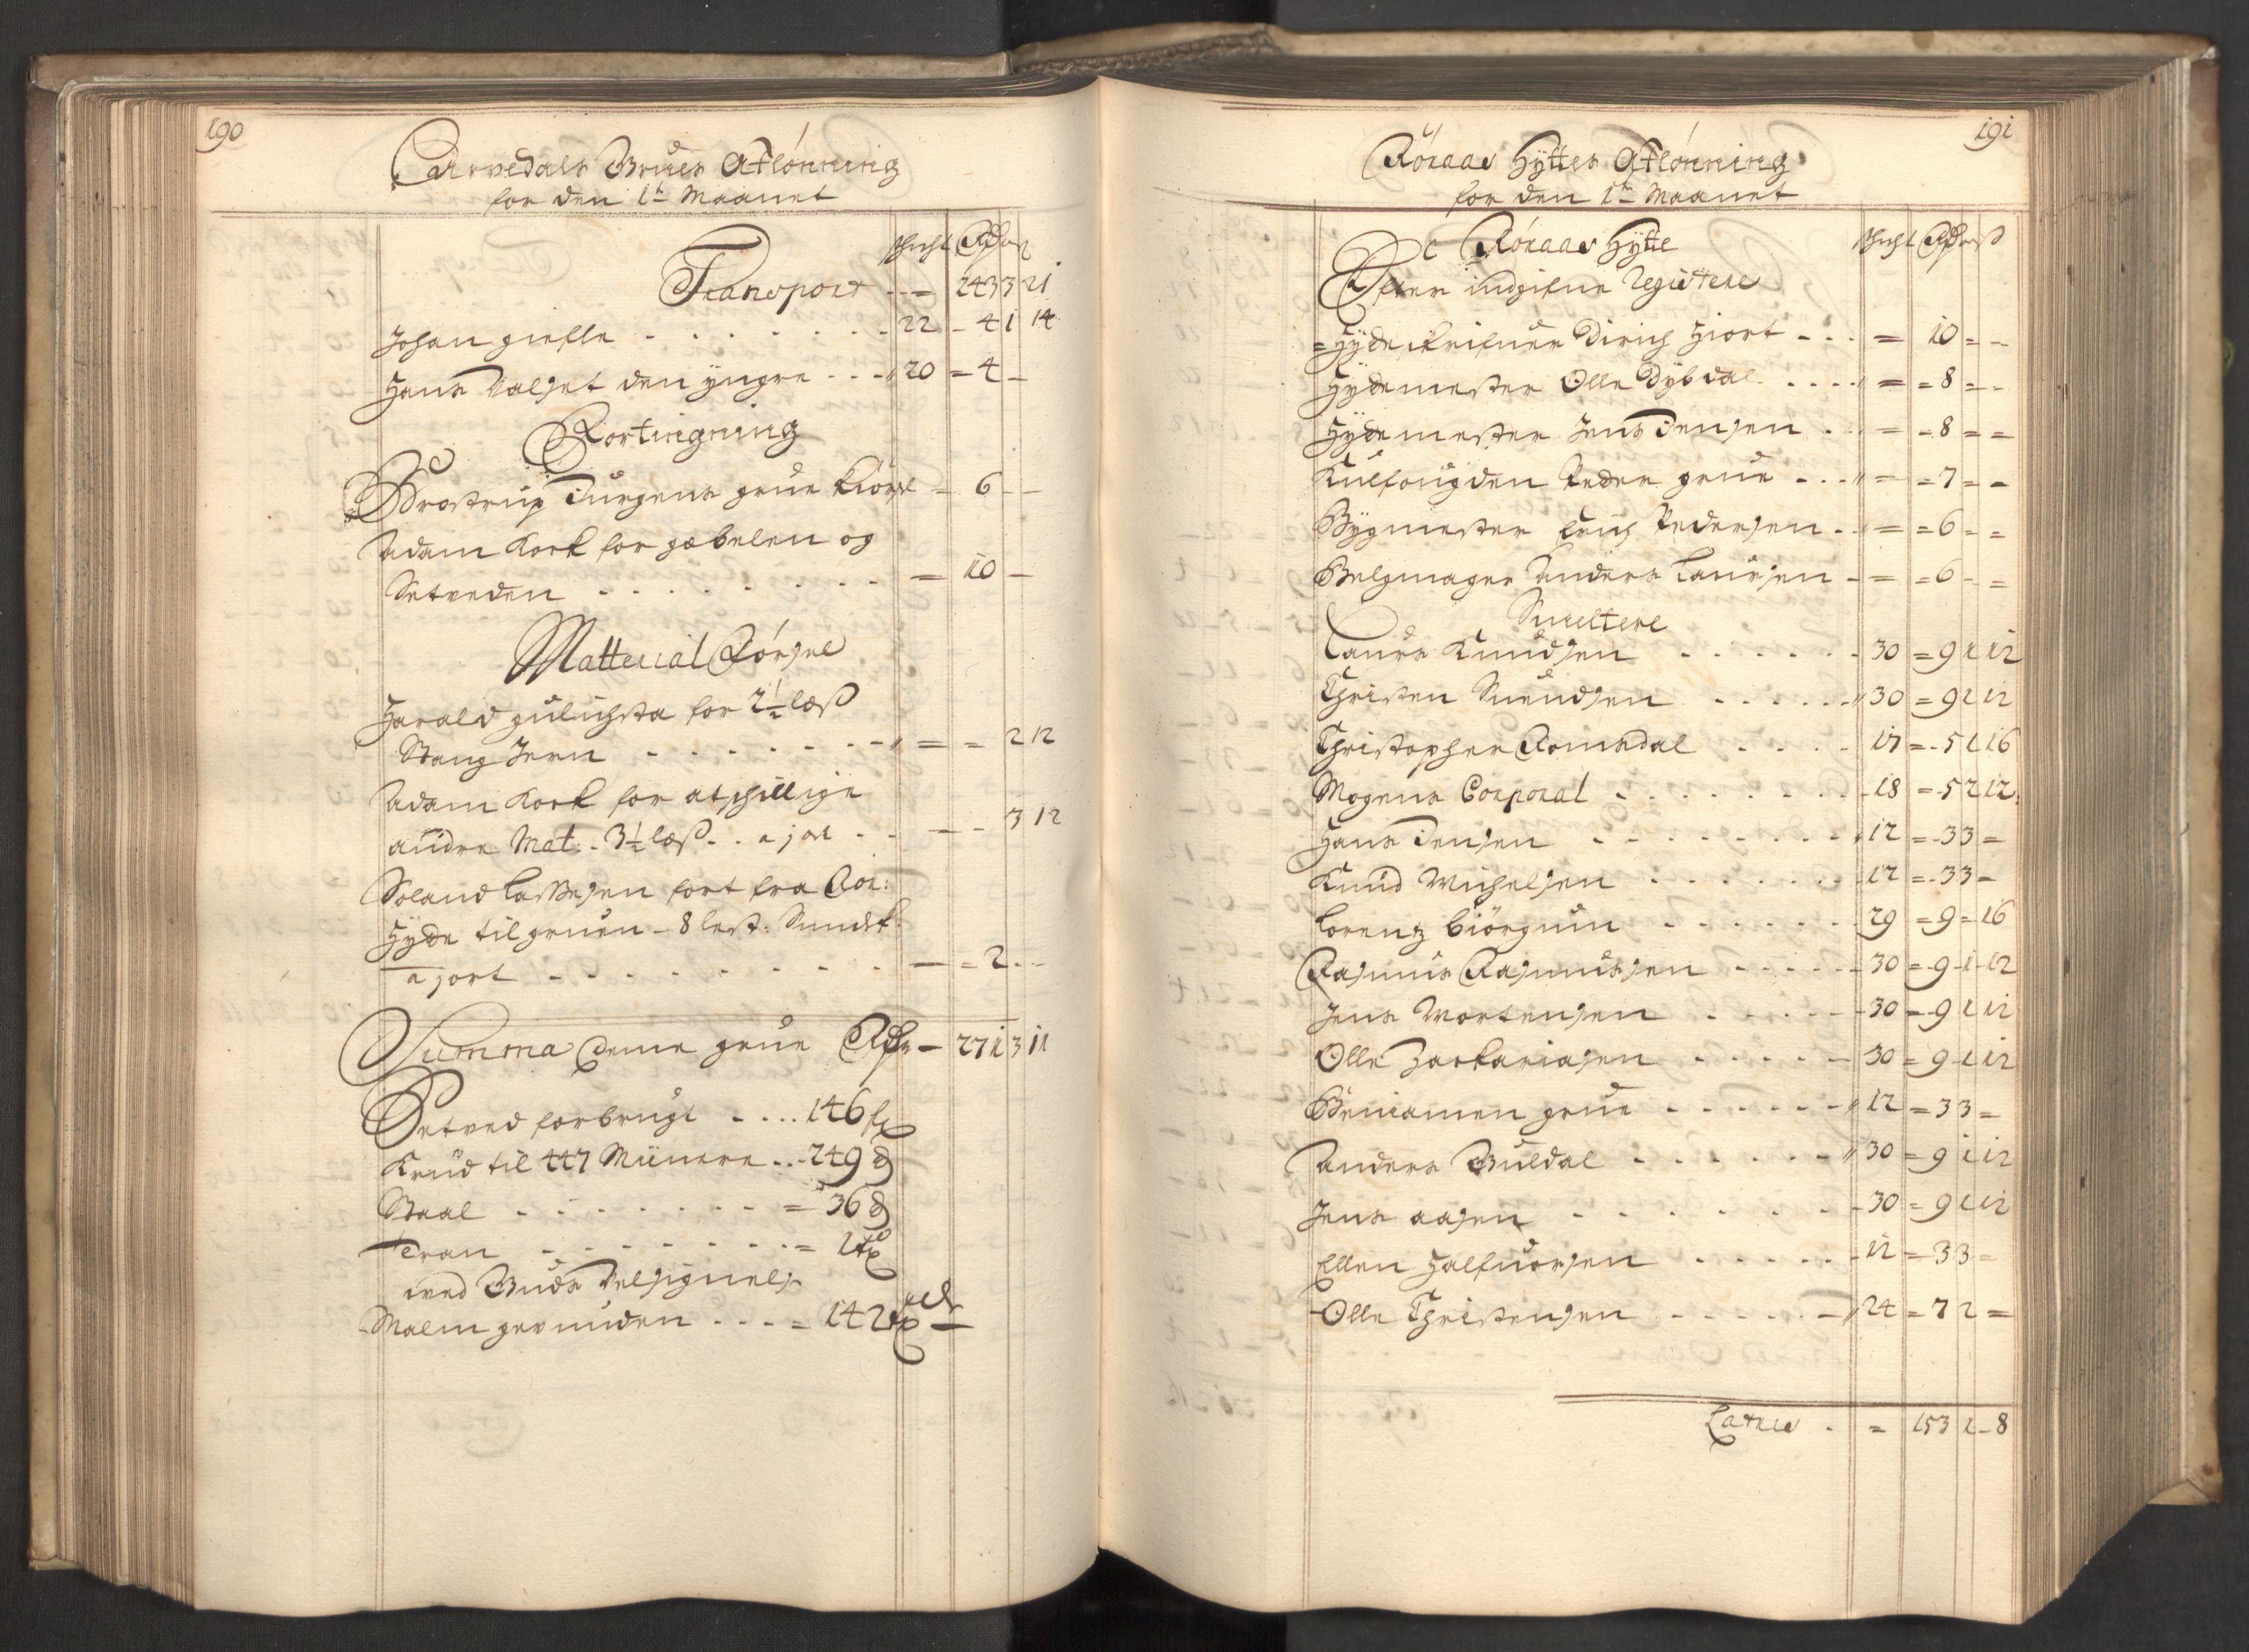 190
Arvedals Grues Aflønning
for den 1te Maanet
schicht Rdr ort ß
Transport - - = 243 3 21
Johan giefle - - - - 22 - 4 1 14
Hans Valset den yngre - - - 20 = 4 -
Fortingning
Brostrup Jurgens grue kiørsel = 6 - -
Adam Kock for gebelen og
Setveden - - - - = 10 -
Matterial Førsel
Harald gulichsta for 2 1/2 læß
Stang Jern - - - - = = 2 12
Adam Kock for atschillige
andre Mat: - 3 1/2 læß - - a j ort - - - - 3 12
Lassesen ført fra Rør:
Hyde til gruen - 8 lest:
a j ort - - - - = 2 - -
Summa denne grue Rdr - 271 3 11
Setved forbrugt - - - - 146 f
Krud til 447 Minere - - - 249 ℔
Staal - - - - = 36 ℔
Tran - - - - = 1 td
ved Guds Velsignelse
Malm gevunden - - - = 142 td
191
Røraas Hyttes Aflønning
for den 1te Maanet
Røraas Hytte schicht Rdr ort ß
Efter indgifne Registere
Hydeskrifver Dirich Hiort - - - = 10 = -
Hydemester Olle Dybdal - - - - = = 8 = -
Hydemester Jens Jensen - - = = 8 = =
Kulfougden Peder grue - - - = = 7 = -
Bygmester Erich Pedersen - - = = 6 - =
Belgmager Anders Laursen - = = 6 - =
Smeltere
Laurs Knudsen - - - - 30 = 9 1 12
Christen Suendsen - - - - 30 = 9 1 12
Christopher Romsdal - - - - 17 = 5 1 16
Mogens Corporal - - - - 18 = 5 2 12
Hans Jensen - - - - 12 = 3 3 =
Knud Michelsen - - - - 12 = 3 3 -
Lorentz biørgum - - - - 29 = 9 = 16
Rasmus Rasmussen - - - - 30 = 9 1 12
Jens Mortensen - - - - 30 = 9 1 12
Olle Zackariasen - - - - 30 = 9 1 12
Beniamen grue - - - - 12 = 3 3 =
Anders Buldal - - - - 30 = 9 1 12
Jens aasen - - - - 30 = 9 1 12
Ellen Halfuorsen - - - - 12 = 3 3 -
Olle Christensen - - - - 24 = 7 2 =
Lateris - = 153 1 - 8